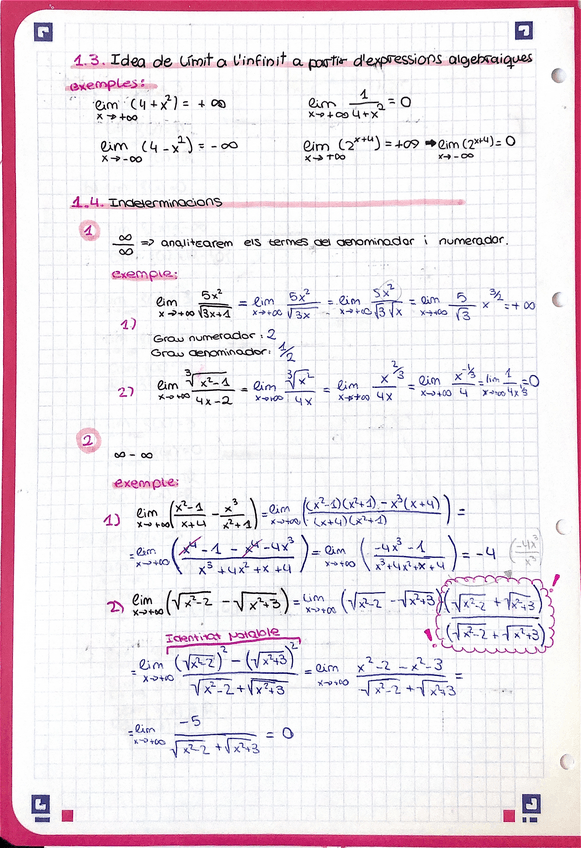 1.3. Idea de límit a l'infinit a partir d'expressions algebraiques
exemples:
lim x→+∞ (4+x²) = +∞
lim x→+∞ 1/(4+x²) = 0
lim x→-∞ (4-x²) = -∞
lim x→+∞ (2^(x+4)) = +∞ ➡ lim x→-∞ (2^(x+4)) = 0
1.4. Indeterminacions
1
∞/∞ => analitzarem els termes del denominador i numerador.
exemple:
1) lim x→+∞ 5x²/√(3x+1) = lim x→+∞ 5x²/√(3x) = lim x→+∞ 5x²/(√3 √x) = lim x→+∞ 5/√3 x^(3/2) = +∞
Grau numerador: 2
Grau denominador: 1/2
2) lim x→+∞ ∛(x²-1)/(4x-2) = lim x→+∞ ∛(x²)/(4x) = lim x→+∞ x^(2/3)/(4x) = lim x→+∞ x^(-1/3)/4 = lim x→+∞ 1/(4x^(1/3)) = 0
2
∞ - ∞
exemple:
1) lim x→+∞ ((x²-1)/(x+4) - x³/(x²+1)) = lim x→+∞ (((x²-1)(x²+1) - x³(x+4))/((x+4)(x²+1))) =
= lim x→+∞ ((x⁴ - 1 - x⁴ - 4x³)/(x³+4x²+x+4)) = lim x→+∞ ((-4x³-1)/(x³+4x²+x+4)) = -4 (-4x³/x³)
2) lim x→+∞ (√(x²-2) - √(x²+3)) = lim x→+∞ (√(x²-2) - √(x²+3)) (√(x²-2) + √(x²+3))/(√(x²-2) + √(x²+3)) !
!
Identitat notable
= lim x→+∞ ((√(x²-2))² - (√(x²+3))²)/(√(x²-2) + √(x²+3)) = lim x→+∞ (x²-2-x²-3)/(√(x²-2) + √(x²+3)) =
= lim x→+∞ -5/(√(x²-2) + √(x²+3)) = 0